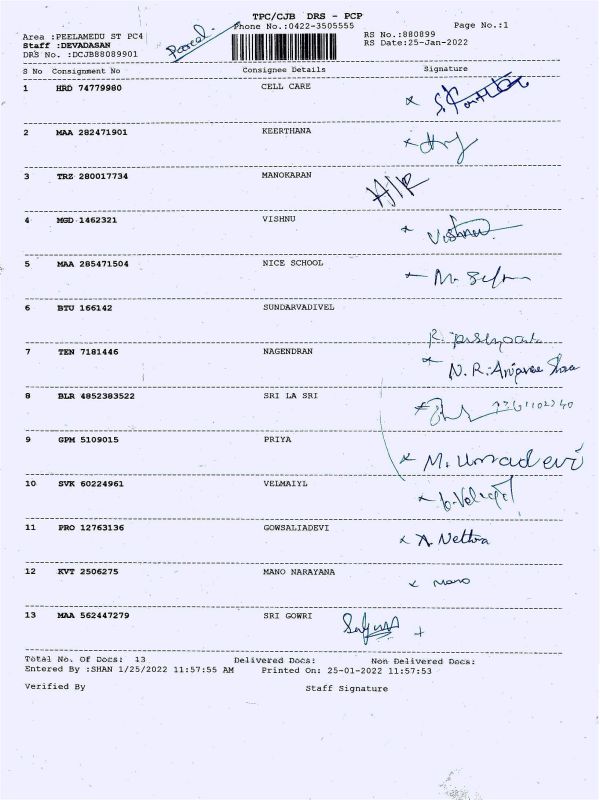 TPC/CJB DRS - PCP
Phone No.:0422-3505555
Page No.:1
Area :PEELAMEDU ST PC4
RS No.:880899
Staff :DEVADASAN
RS Date:25-Jan-2022
DRS No. :DCJB88089901
S No Consignment No Consignee Details Signature
1 HRD 74779980 CELL CARE
2 MAA 282471901 KEERTHANA
3 TRZ 280017734 MANOKARAN
4 MGD 1462321 VISHNU
Vishnu
5 MAA 285471504 NICE SCHOOL
6 BTU 166142 SUNDARVADIVEL
7 TEN 7181446 NAGENDRAN
8 BLR 4852383522 SRI LA SRI
9 GPM 5109015 PRIYA
M. Umadevi
10 SVK 60224961 VELMAIYL
11 PRO 12763136 GOWSALIADEVI
A. Nethra
12 KVT 2506275 MANO NARAYANA
Mano
13 MAA 562447279 SRI GOWRI
Total No. Of Docs: 13 Delivered Docs: Non Delivered Docs:
Entered By :SHAN 1/25/2022 11:57:55 AM Printed On: 25-01-2022 11:57:53
Verified By Staff Signature